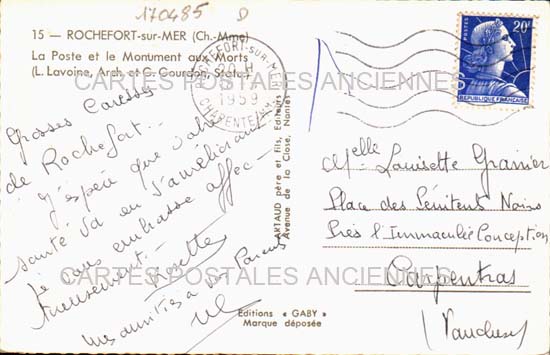 170485 D
15 — ROCHEFORT-sur-MER (Ch.-Mme)
La Poste et le Monument aux Morts
(L. Lavoine, Arch. et C. Gourdon, Statu.)
ROCHEFORT-SUR-MER
1959
CHARENTE
POSTES 20F
REPUBLIQUE FRANÇAISE
CARTES POSTALES ANCIENNES
Grosses Caresses
de Rochefort...
J'espère que votre
santé va en s'améliorant
je vous embrasse affec-
tueusement.
mes amitiés à vos Parents
ARTAUD père et fils, Editeurs
Avenue de la Close, Nantes
Melle Louisette Granier
Place des Pénitents Noirs
Près l'Immaculée Conception
Carpentras
(Vaucluse)
CARTES POSTALES ANCIENNES
Editions « GABY »
Marque déposée